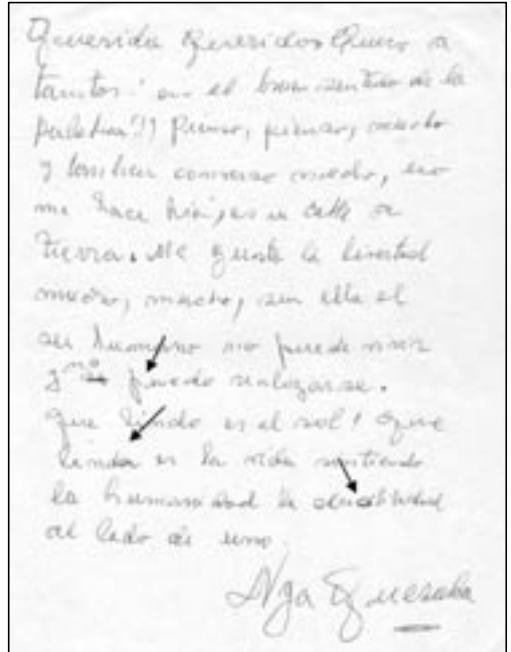 Querida Queridos Quiero a
tantos! en el buen sentido de la
palabra!! Pienso, pienso, mucho
y también converso mucho, eso
me hace bien, es un cable a
tierra. Me gusta la libertad
mucho, mucho, sin ella el
ser humano no puede vivir
y no puedo realizarse.
Que lindo es el sol! Que
linda es la vida sintiendo
la humanidad la
al lado de uno.